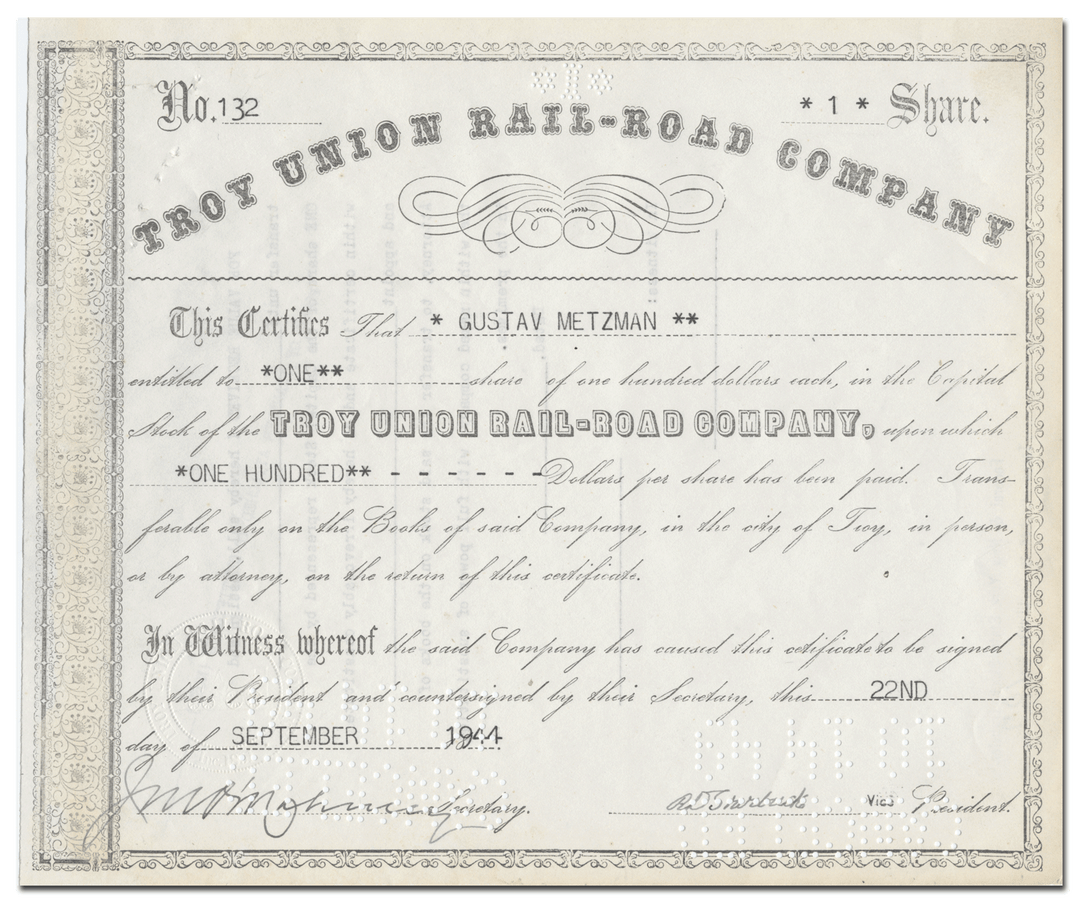 No. 132 * 1 * Share.
TROY UNION RAIL-ROAD COMPANY
This Certifies That * GUSTAV METZMAN **
entitled to *ONE** share of one hundred dollars each, in the Capital
Stock of the TROY UNION RAIL-ROAD COMPANY, upon which
*ONE HUNDRED** - - - - - - - Dollars per share has been paid. Trans-
ferable only on the Books of said Company, in the city of Troy, in person,
or by attorney, on the return of this certificate.
In Witness whereof the said Company has caused this cetificate to be signed
by their President and countersigned by their Secretary, this 22ND
day of SEPTEMBER 1944
Secretary. Vice President.